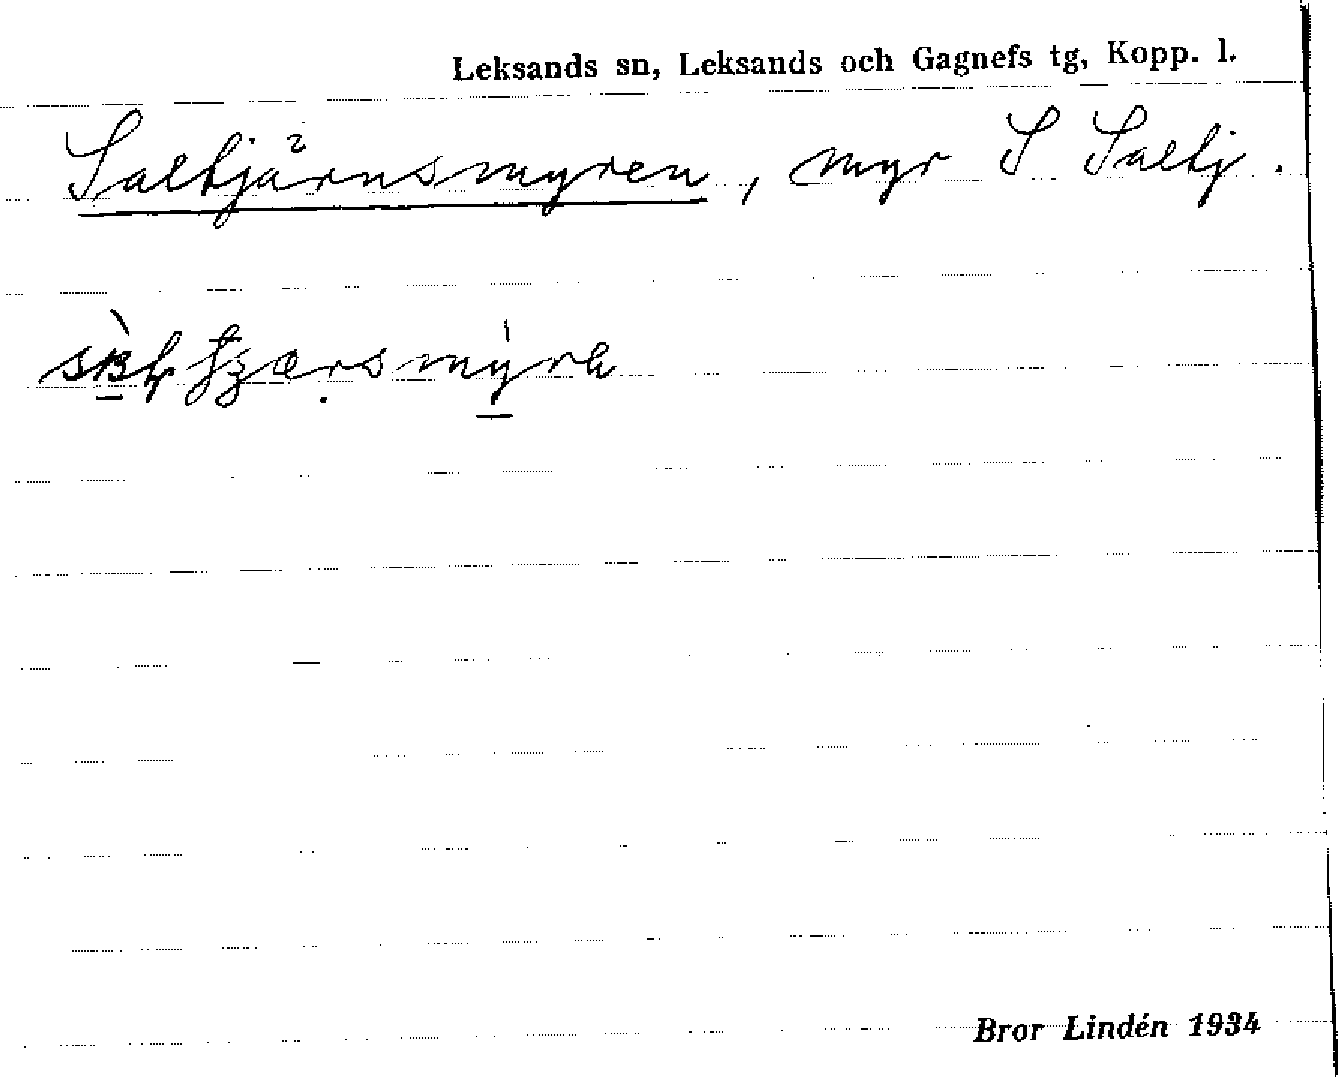 Leksands sn, Leksands och Gagnefs tg, Kopp. l.
Saltjärnsmyren, myr S Saltj.
Bror Lindén 1934